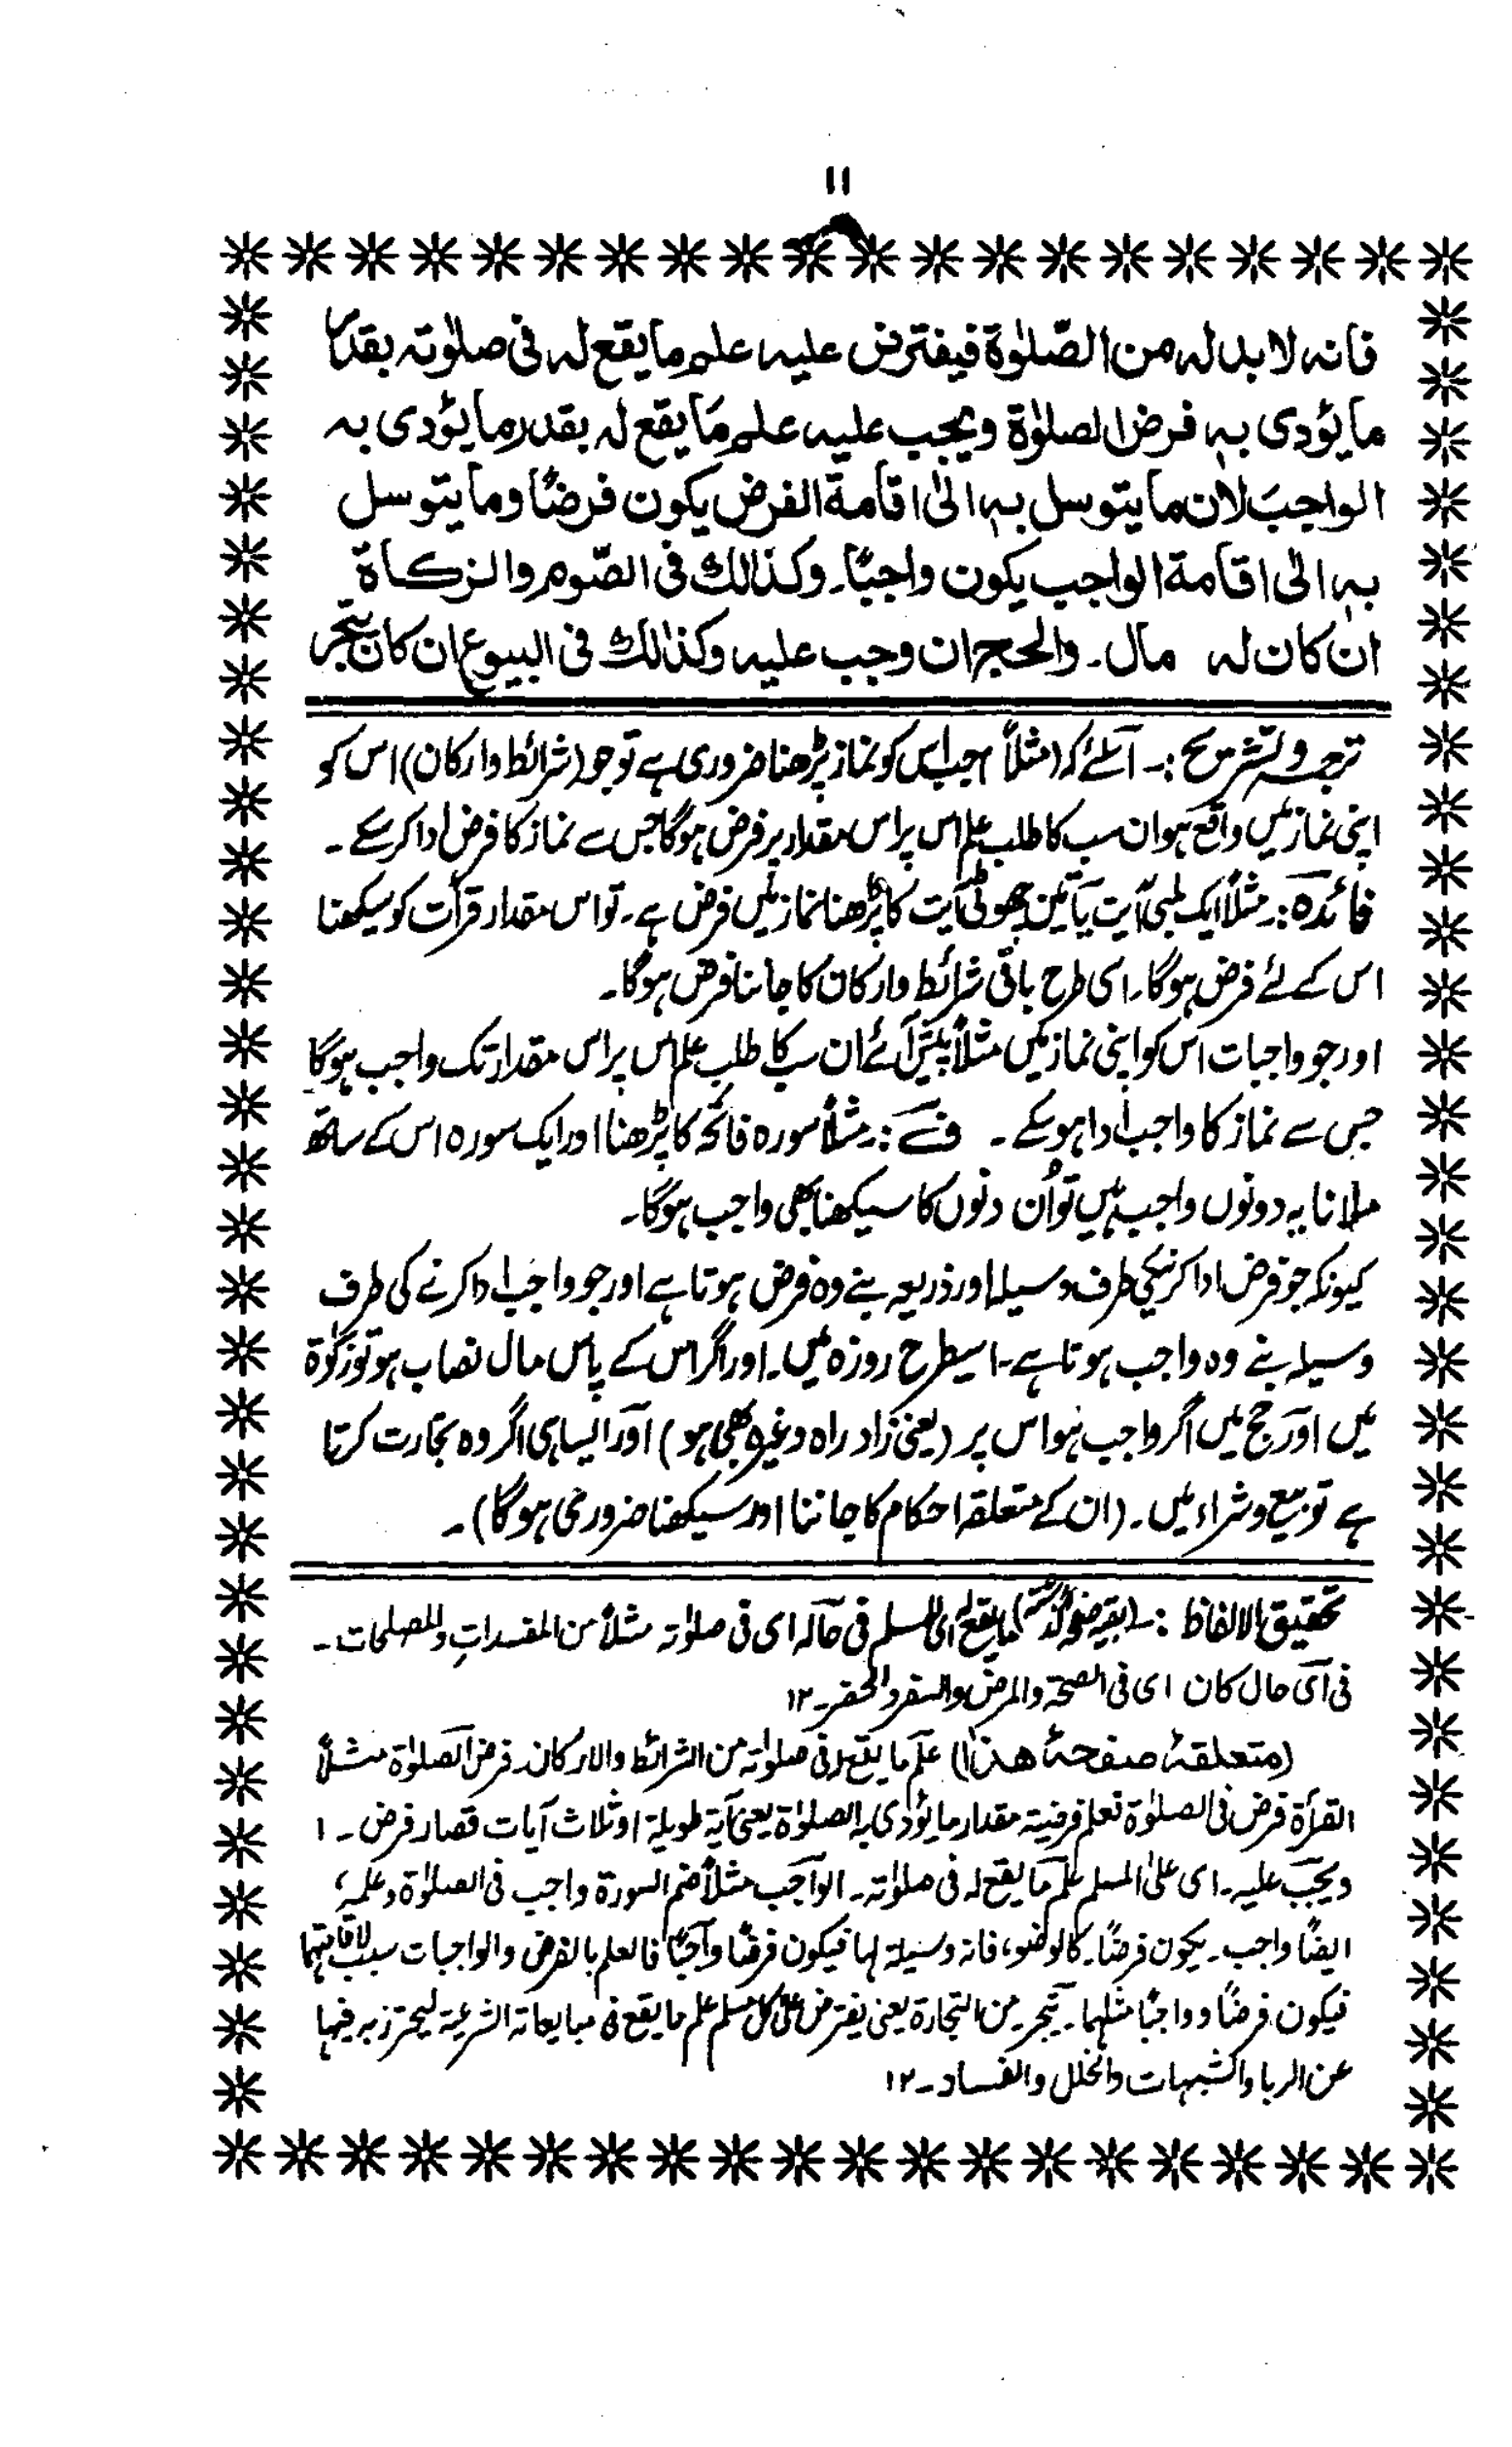 ۱۱
فانہ لا بد لہ من الصّلوٰۃ فیفترض علیہ علم ما یقع لہ فی صلوٰتہ بقدر
ما یؤدی بہ فرض الصلوٰۃ ویجب علیہ علم مَا یقع لہ بقدر ما یؤدی بہ
الواجبَ لان ما یتوسل بہ الیٰ اقامة الفرض یکون فرضًا وما یتوسل
بہ الی اقامة الواجب یکون واجبًا۔ وکذالك فی الصّوم والزکاة
ان کان لہ مال۔ والحج ان وجب علیہ وکذالك فی البیوع ان کان یتّجر
ترجمہ وتشریح :۔ اسلئے کہ (مثلاً) جب اس کو نماز پڑھنا ضروری ہے تو جو (شرائط وارکان) اس کو
اپنی نماز میں واقع ہو ان سب کا طلب علم اس پر اس مقدار پر فرض ہوگا جس سے نماز کا فرض ادا کرسکے ۔
فائدہ :۔ مثلاً ایک لمبی آیت یا تین چھوٹی آیت کا پڑھنا نماز میں فرض ہے ۔ تو اس مقدار قرأت کو سیکھنا
اس کے لئے فرض ہوگا ۔ اسی طرح باقی شرائط وارکان کا جاننا فرض ہوگا۔
اور جو واجبات اس کو اپنی نماز میں مثلاً پیش آئے ان سب کا طلب علم اس پر اس مقدار تک واجب ہوگا
جس سے نماز کا واجب ادا ہوسکے ۔ ف :۔ مثلاً سورہ فاتحہ کا پڑھنا اور ایک سورہ اس کے ساتھ
ملانا یہ دونوں واجب ہیں تو اُن دنوں کا سیکھنا بھی واجب ہوگا۔
کیونکہ جو فرض ادا کرنیکی طرف وسیلہ اور ذریعہ بنے وہ فرض ہوتا ہے اور جو واجب ادا کرنے کی طرف
وسیلہ بنے وہ واجب ہوتا ہے ۔ اسیطرح روزہ میں ۔ اور اگر اس کے پاس مال نصاب ہو تو زکوٰۃ
میں اور حج میں اگر واجب ہو اس پر (یعنی زاد راہ وغیرہ بھی ہو) اور ایسا ہی اگر وہ تجارت کرتا
ہے تو بیع وشراء میں ۔ (ان کے متعلقہ احکام کا جاننا اور سیکھنا ضروری ہوگا) ۔
تحقیق الالفاظ :۔ (بقیہ صفحہ گذشتہ) ما یقع لہ ای للمسلم فی حالہ ای فی صلوٰتہ مثلاً من المفسدات والمصلحات ۔
فی ای حال کان ای فی الصحۃ والمرض والسفر والحضر ۔ ۱۲
(متعلقہٴ صفحہٴ ھذا) علم ما یقع لہ فی صلوٰتہ من الشرائط والارکان ۔ فرض الصلوٰۃ مثلاً
القرأۃ فرض فی الصلوٰۃ فعلم فرضیۃ مقدار ما یؤدی بہ الصلوٰۃ یعنی آیۃ طویلۃ او ثلاث آیات قصار فرض ۔ ۱
ویجب علیہ ۔ ای علی المسلم علم ما یقع لہ فی صلوٰتہ ۔ الواجب مثلاً ضم السورۃ واجب فی الصلوٰۃ وعلمہٗ
ایضًا واجب ۔ یکون فرضًا ۔ کالوضوء فانہ وسیلۃ لہا فیکون فرضًا واجبًا فالعلم بالفرض والواجبات سبب لاقامتہما
فیکون فرضًا وواجبًا مثلہما ۔ یتجر من التجارۃ یعنی یفترض علی کل مسلم علم ما یقع فی مبایعاتہ الشرعیۃ لیحترز بہ فیہا
عن الربا والشبہات والخلل والفساد ۔ ۱۲